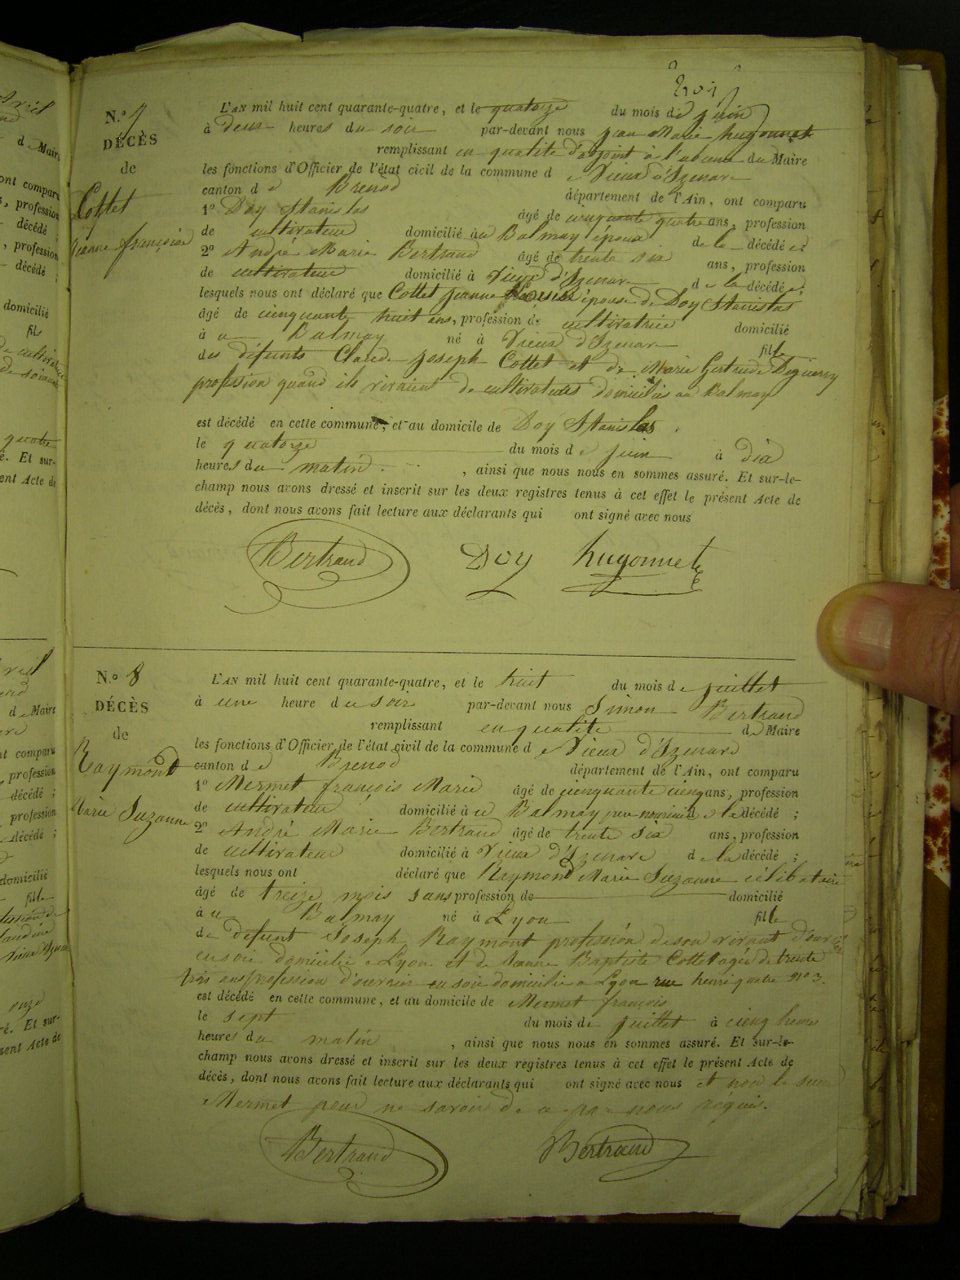 N.o 7
DÉCÈS
de
Collet
Jeanne françoise
L'AN mil huit cent quarante-quatre, et le quatorze du mois de juin
à deux heures du soir par-devant nous Jean Marie hugonnet
remplissant en qualité d'adjoint à l'absence du Maire
les fonctions d'Officier de l'état civil de la commune d e Vieux d'Izenave
canton d e Brenod département de l'Ain, ont comparu
1o Doy Stanislas âgé de cinquante quatre ans, profession
de cultivateur domicilié au Balmay époux de la décédée
2o André Marie Bertrand âgé de trente six ans, profession
de cultivateur domicilié à Vieux d'Izenave d e la décédée;
lesquels nous ont déclaré que Collet Jeanne épouse de Doy Stanislas
âgé de cinquante huit ans, profession de cultivatrice domicilié
à u Balmay né à Vieux d'Izenave fille
des défunts Claude Joseph Collet et de Marie Gertrude
profession quand ils vivaient de cultivateurs domiciliés au Balmay
est décédé en cette commune, et au domicile de Doy Stanislas
le quatorze du mois d e juin à dix
heures du matin, ainsi que nous nous en sommes assuré. Et sur-le-
champ nous avons dressé et inscrit sur les deux registres tenus à cet effet le présent Acte de
décès, dont nous avons fait lecture aux déclarants qui ont signé avec nous
Bertrand Doy hugonnet
N.o 8
DÉCÈS
de
Raymond
Marie Suzanne
L'AN mil huit cent quarante-quatre, et le huit du mois d e juillet
à une heure du soir par-devant nous Simon Bertrand
remplissant en qualité d Maire
les fonctions d'Officier de l'état civil de la commune d e Vieux d'Izenave
canton d e Brenod département de l'Ain, ont comparu
1o Mermet françois Marie âgé de cinquante cinq ans, profession
de cultivateur domicilié à u Balmay père nourricier d e la décédé;
2o André Marie Bertrand âgé de trente six ans, profession
de cultivateur domicilié à Vieux d'Izenave d e la décédé;
lesquels nous ont déclaré que Raymond Marie Suzanne célibataire
âgé de treize mois sans profession de domicilié
à u Balmay né à Lyon fille
de défunt Joseph Raymont profession de son vivant d'ouvrier
en soie domicilié a Lyon et de Jeanne Baptiste Collet agée de trente
trois ans profession d'ouvrier en soie domicilié a Lyon rue henri quatre no 3
est décédé en cette commune, et au domicile de Mermet françois
le sept du mois de juillet à cinq heures
heures du matin, ainsi que nous nous en sommes assuré. Et sur-le-
champ nous avons dressé et inscrit sur les deux registres tenus à cet effet le présent Acte de
décès, dont nous avons fait lecture aux déclarants qui ont signé avec nous et non le sieur
Mermet pour ne savoir de ce par nous requis.
Bertrand Bertrand